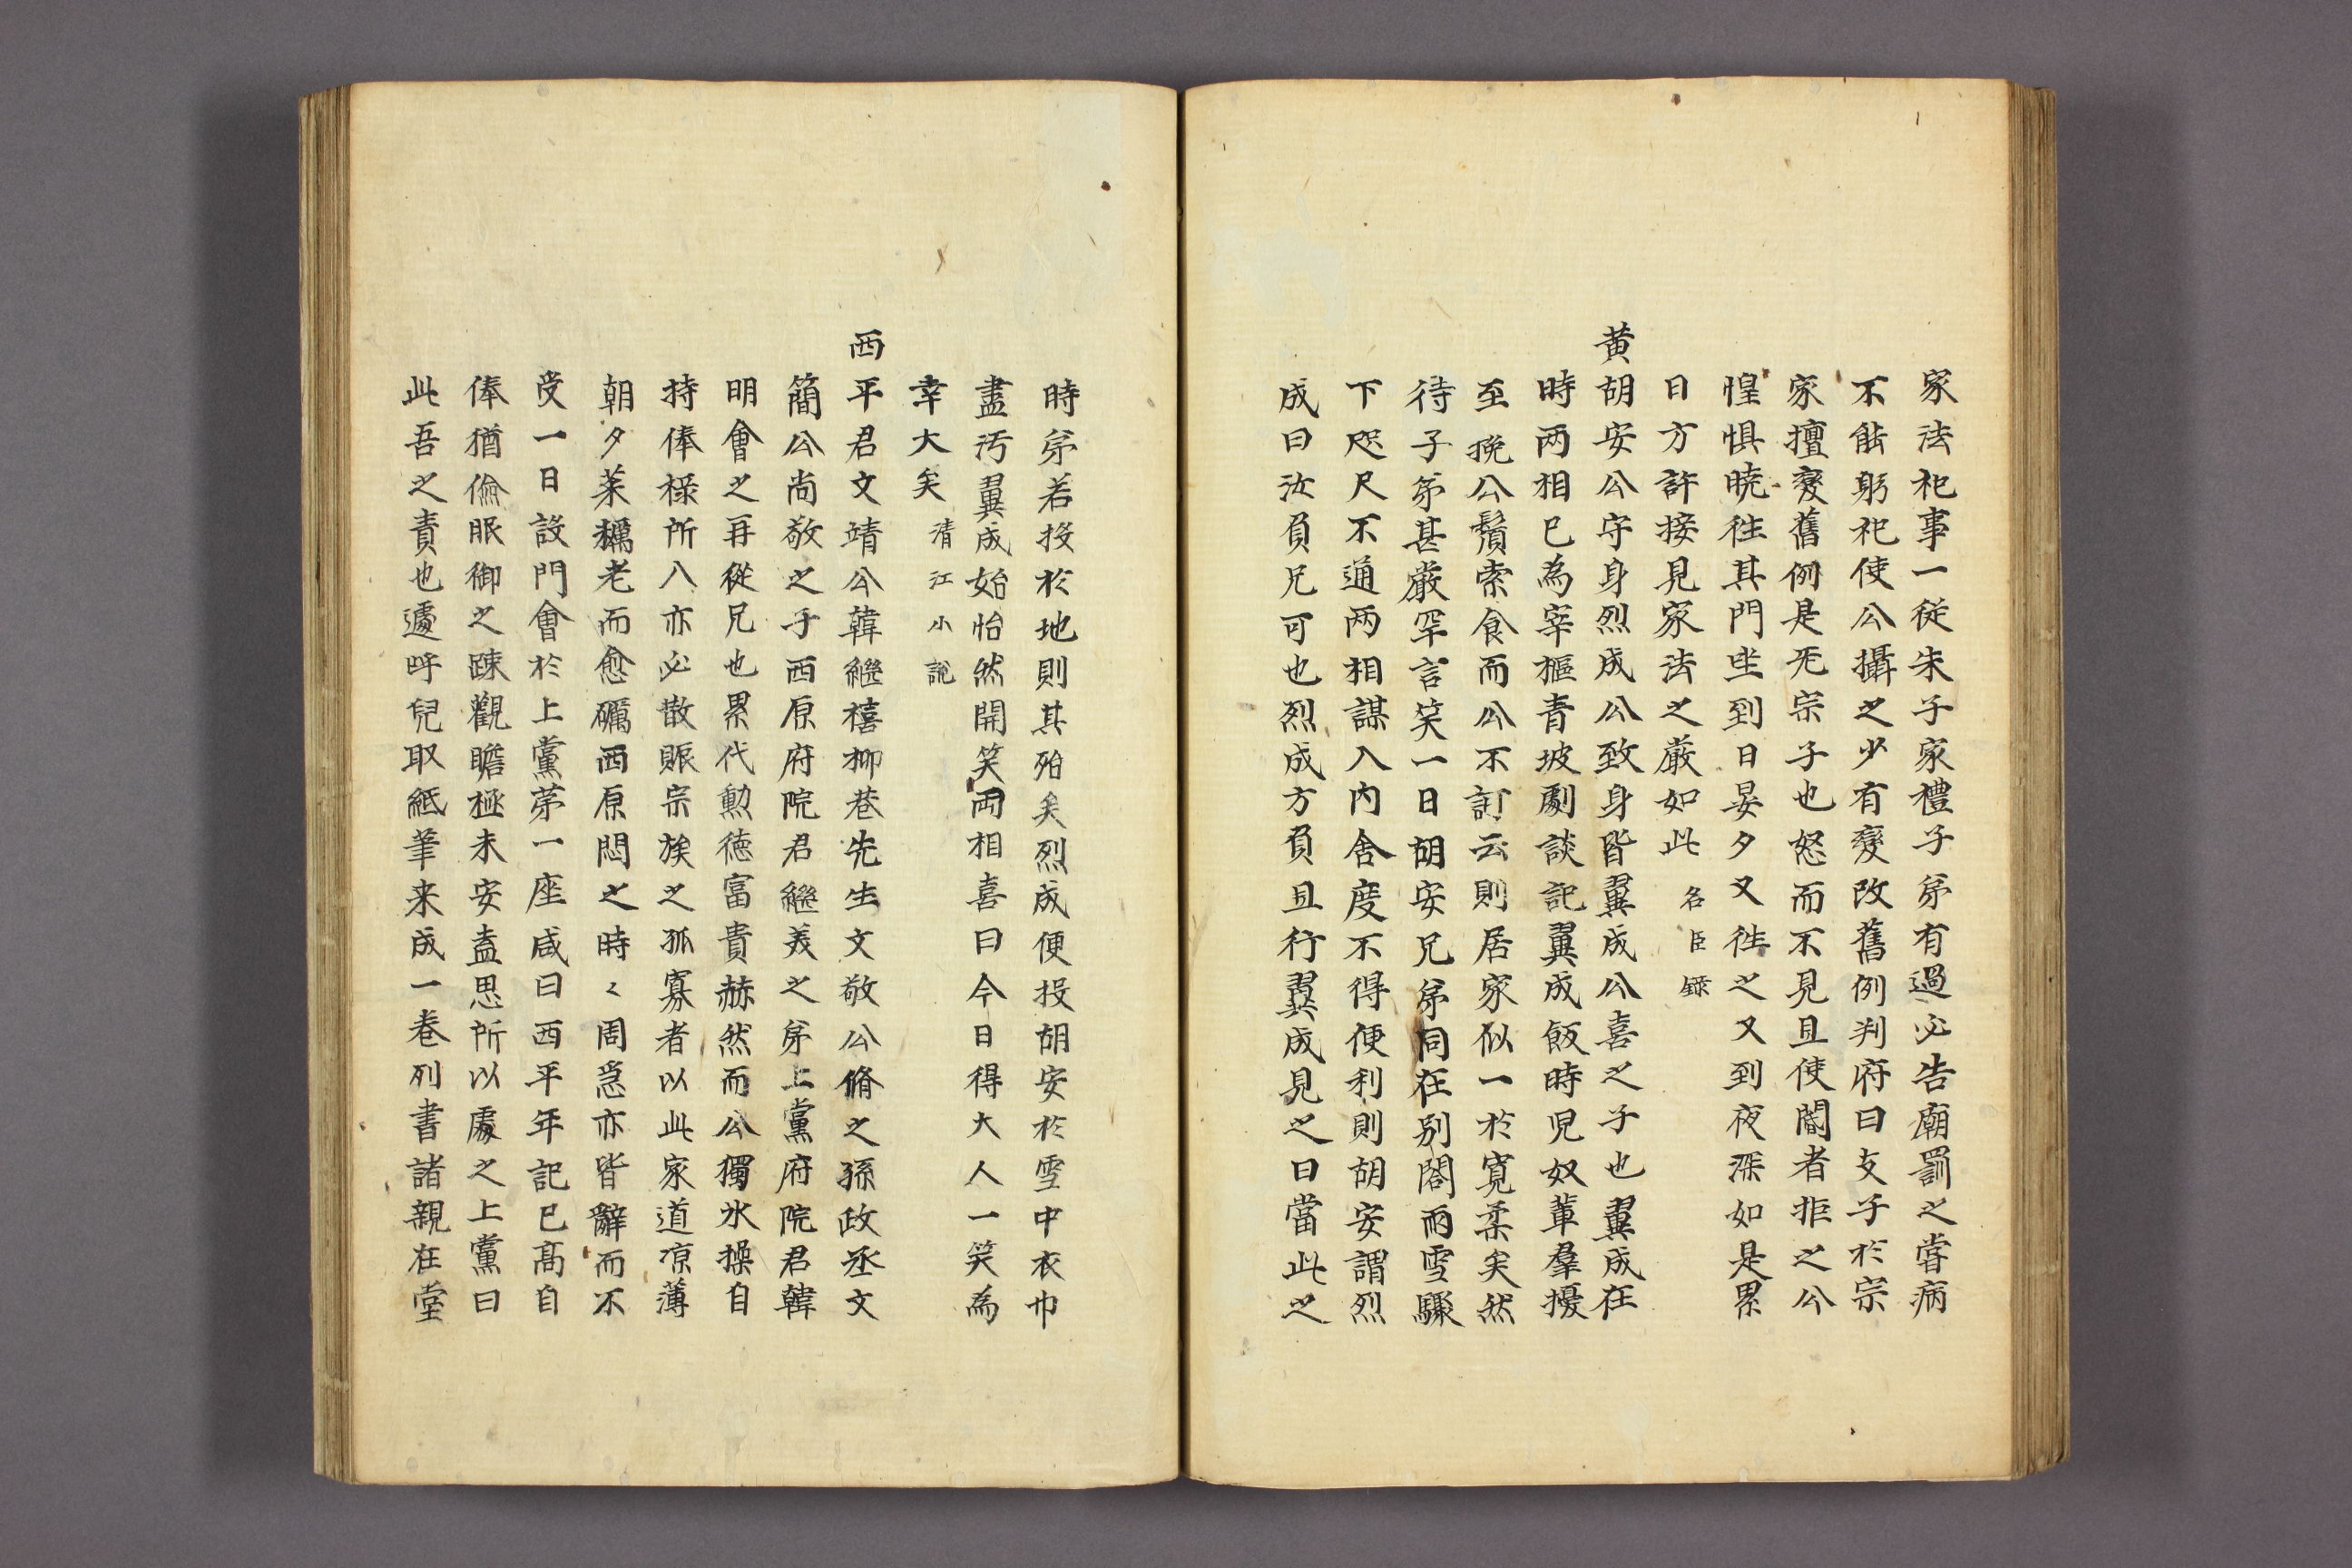 家法祀事一従朱子家禮子弟有過必告廟罰之甞病
不能躬祀使公攝之少有變改舊例判府曰支子於宗
家擅變舊例是无宗子也怒而不見且使閽者拒之公
惶惧曉徃其門坐到日晏夕又徃之又到夜深如是累
日方許接見家法之厳如此 名臣録
黄胡安公守身烈成公致身皆翼成公喜之子也翼成在
時两相已為宰樞青坡劇談記翼成飯時児奴軰羣擾
至挽公鬚索食而公不訶云則居家似一於寛柔矣然
待子弟甚厳罕言笑一日胡安兄弟同在别閤雨雪驟
下咫尺不通两相謀入内舍度不得便利則胡安謂烈
成曰汝負兄可也烈成方負且行翼成見之曰當此之
時弟若投於地則其殆矣烈成便投胡安於雪中衣巾
盡汚翼成始怡然開笑両相喜曰今日得大人一笑為
幸大矣 清江小説
西平君文靖公韓繼禧柳巷先生文敬公脩之孫政丞文
簡公尚敬之子西原府院君繼美之弟上黨府院君韓
明會之再從兄也累代勲徳富貴赫然而公獨氷操自
持俸祿所入亦必散賑宗族之孤寡者以此家道凉薄
朝夕菜糲老而愈礪西原悶之時〻周急亦皆辭而不
受一日設門會於上黨苐一座咸曰西平年記已高自
俸猶儉服御之踈觀瞻極未安盍思所以處之上黨曰
此吾之責也遽呼兒取紙筆来成一卷列書諸親在堂